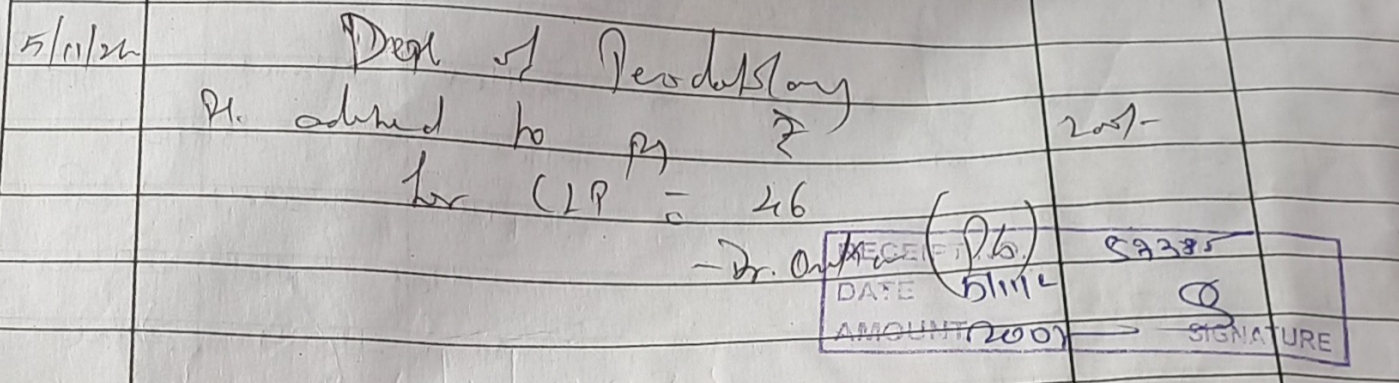 5/11/24 Dept of Periodontology
Pt. advised to pay ₹ 200/-
for CLP = 46
- Dr. (P.G.)
RECEIPT 57385
DATE 5/11/2
AMOUNT 200/- SIGNATURE